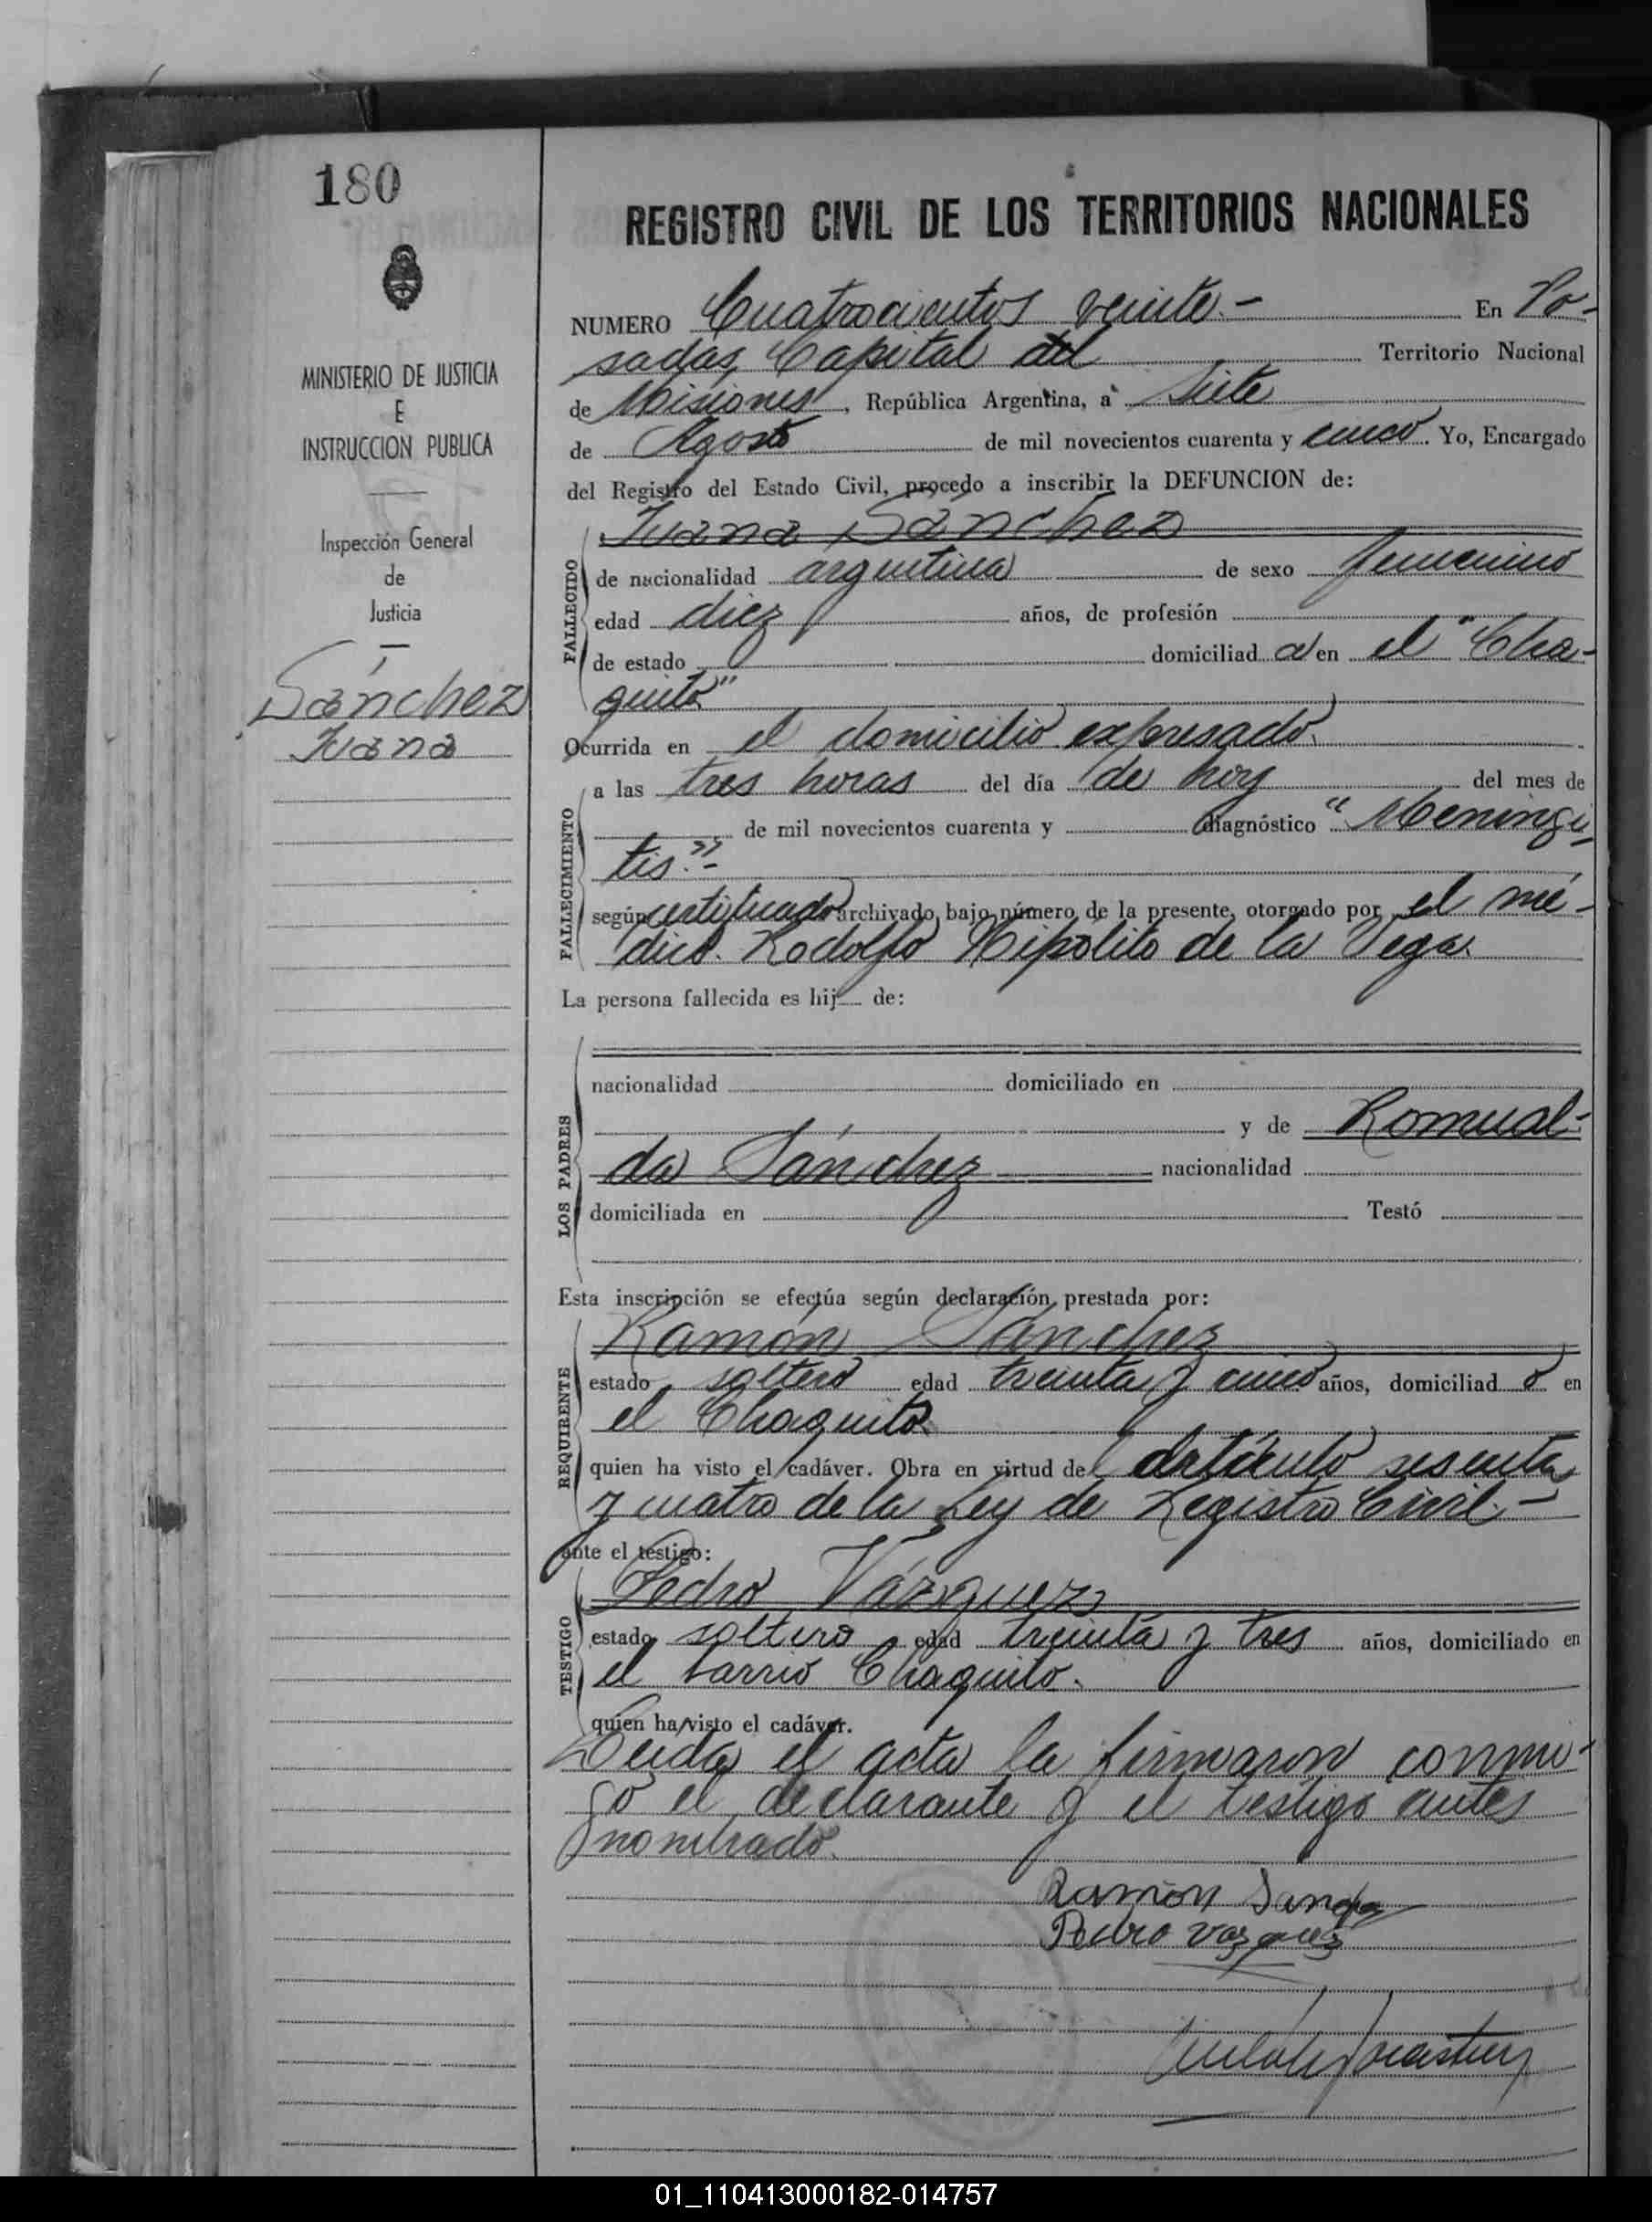 180
MINISTERIO DE JUSTICIA
E
INSTRUCCION PUBLICA
Inspección General
de
Justicia
Sánchez
Juana
REGISTRO CIVIL DE LOS TERRITORIOS NACIONALES
NUMERO Cuatrocientos veinte.- En Po-
sadas, Capital del Territorio Nacional
de Misiones, República Argentina, a siete
de Agosto de mil novecientos cuarenta y cinco. Yo, Encargado
del Registro del Estado Civil, procedo a inscribir la DEFUNCION de:
Juana Sánchez
FALLECIDO
de nacionalidad argentina de sexo femenino
edad diez años, de profesión
de estado domiciliad a en el "Cha-
quito"
Ocurrida en el domicilio expresado.
FALLECIMIENTO
a las tres horas del día de hoy del mes de
de mil novecientos cuarenta y diagnóstico "Meningi-
tis."-
según certificado archivado bajo número de la presente, otorgado por el mé-
dico Rodolfo Hipólito de la Vega.
La persona fallecida es hij de:
LOS PADRES
nacionalidad domiciliado en
y de Romual-
da Sánchez nacionalidad
domiciliada en Testó
Esta inscripción se efectúa según declaración prestada por:
Ramón Sánchez
REQUIRENTE
estado soltero edad treinta y cinco años, domiciliad o en
el Chaquito.
quien ha visto el cadáver. Obra en virtud del artículo sesenta
y cuatro de la Ley de Registro Civil.-
ante el testigo:
Pedro Vázquez
TESTIGO
estado soltero edad treinta y tres años, domiciliado en
el barrio Chaquito.
quien ha visto el cadáver.
Leída el acta la firmaron conmi-
go el declarante y el testigo antes
nombrado.
Ramón Sanchez
Pedro Vazquez
01_110413000182-014757